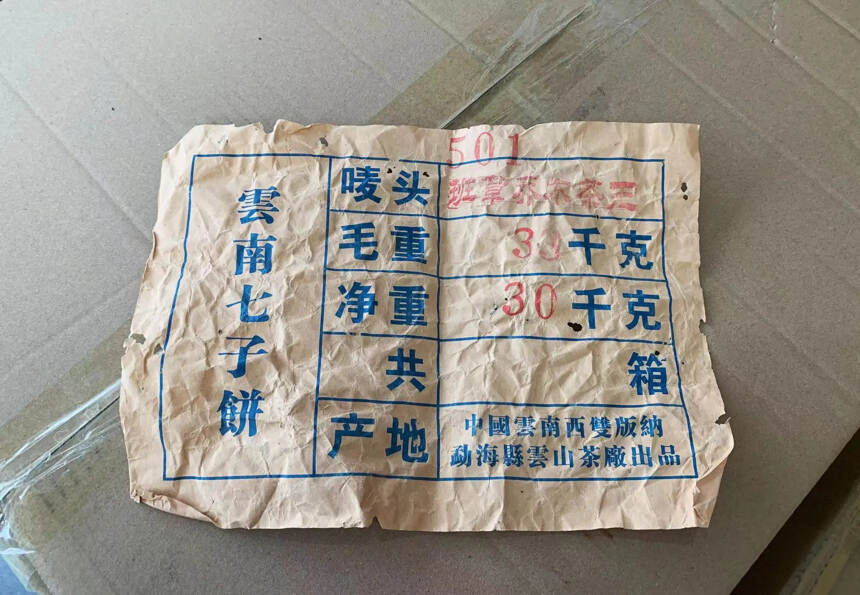 雲南七子餅
501
唛头 班章
毛重 千克
净重 30 千克
共 箱
产地 中國雲南西雙版納
勐海縣雲山茶廠出品